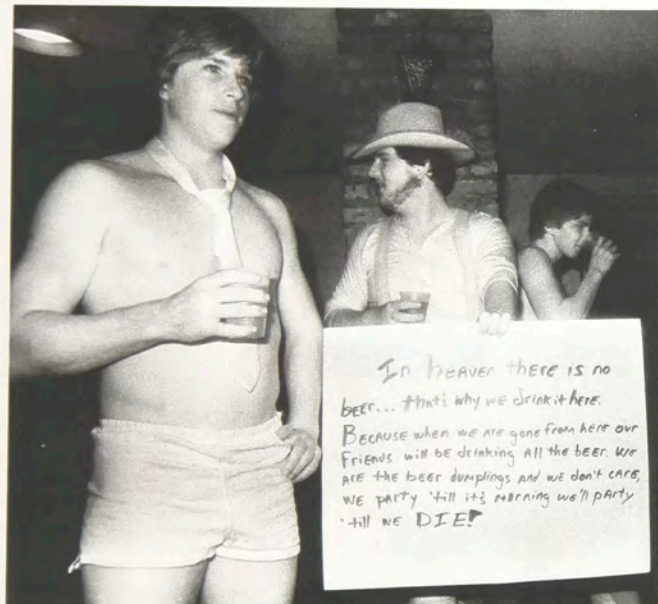 In heaven there is no
beer... that's why we drink it here.
Because when we are gone from here our
friends will be drinking all the beer. We
are the beer dumplings and we don't care,
we party 'till it's morning we'll party
'till we DIE!